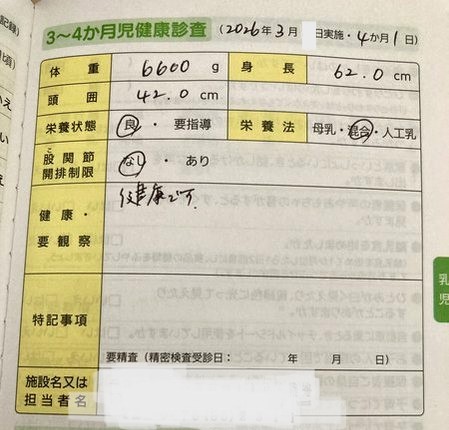 3〜4か月児健康診査 (2026年3月 日実施・4か月1日)
体重 6600 g 身長 62.0 cm
頭囲 42.0 cm
栄養状態 良・要指導 栄養法 母乳・混合・人工乳
股関節開排制限 なし・あり
健康・要観察 健康です
特記事項
要精査(精密検査受診日: 年 月 日)
施設名又は担当者名
乳児